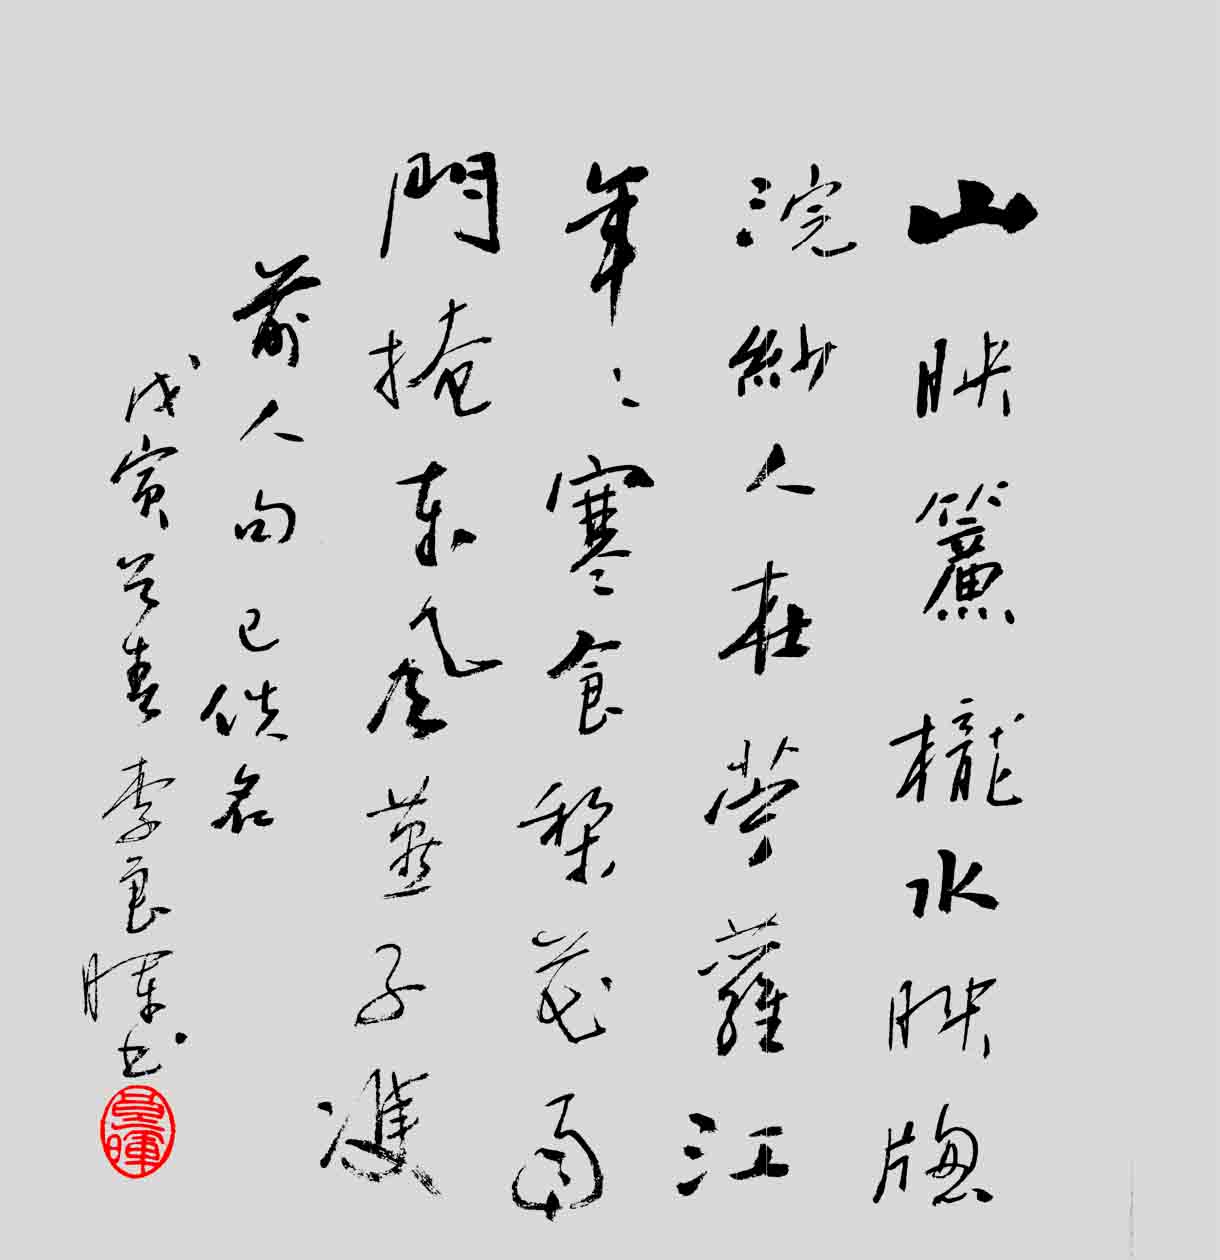 山映簾櫳水映牕
浣紗人在苧蘿江
年〻寒食梨花雨
門掩東風燕子雙
前人句已佚名
戊寅首春李良暉书
良暉